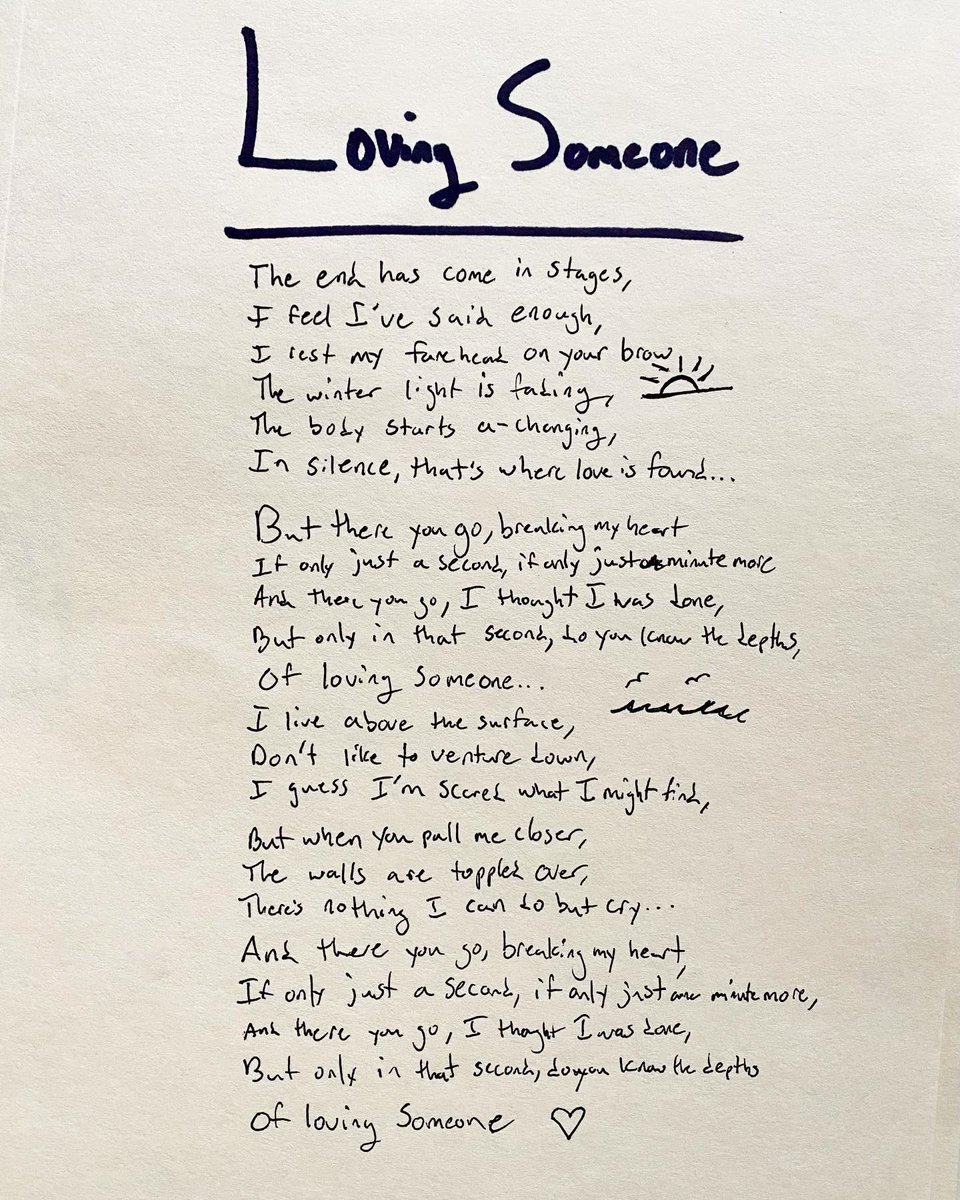 Loving Someone
The end has come in stages,
I feel I've said enough,
I rest my forehead on your brow
The winter light is fading,
The body starts a-changing,
In silence, that's where love is found...
But there you go, breaking my heart
If only just a second, if only just minute more
And there you go, I thought I was done,
But only in that second, do you know the depths,
Of loving someone...
I live above the surface,
Don't like to venture down,
I guess I'm scared what I might find,
But when you pull me closer,
The walls are toppled over,
There's nothing I can do but cry...
And there you go, breaking my heart,
If only just a second, if only just one minute more,
And there you go, I thought I was done,
But only in that second, do you know the depths
Of loving someone